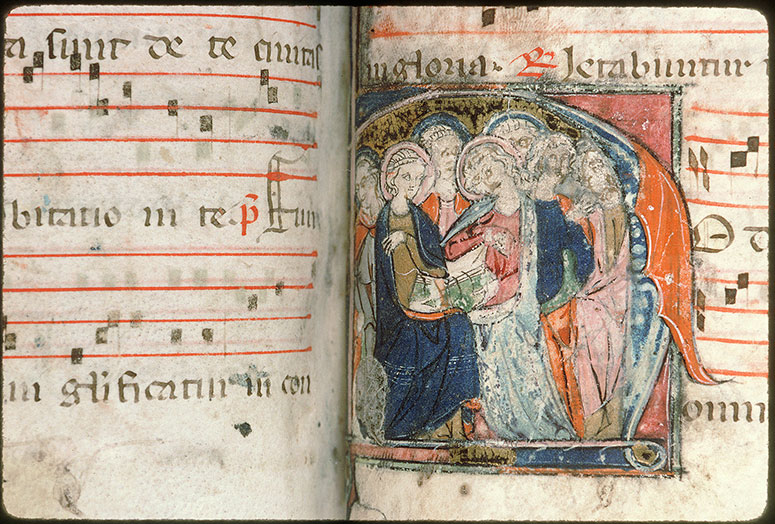 ta sunt de te civitas
bitatio in te p̄
in gl̄ificatur in con
in gloria. R̄ letabuntur
O d
omin